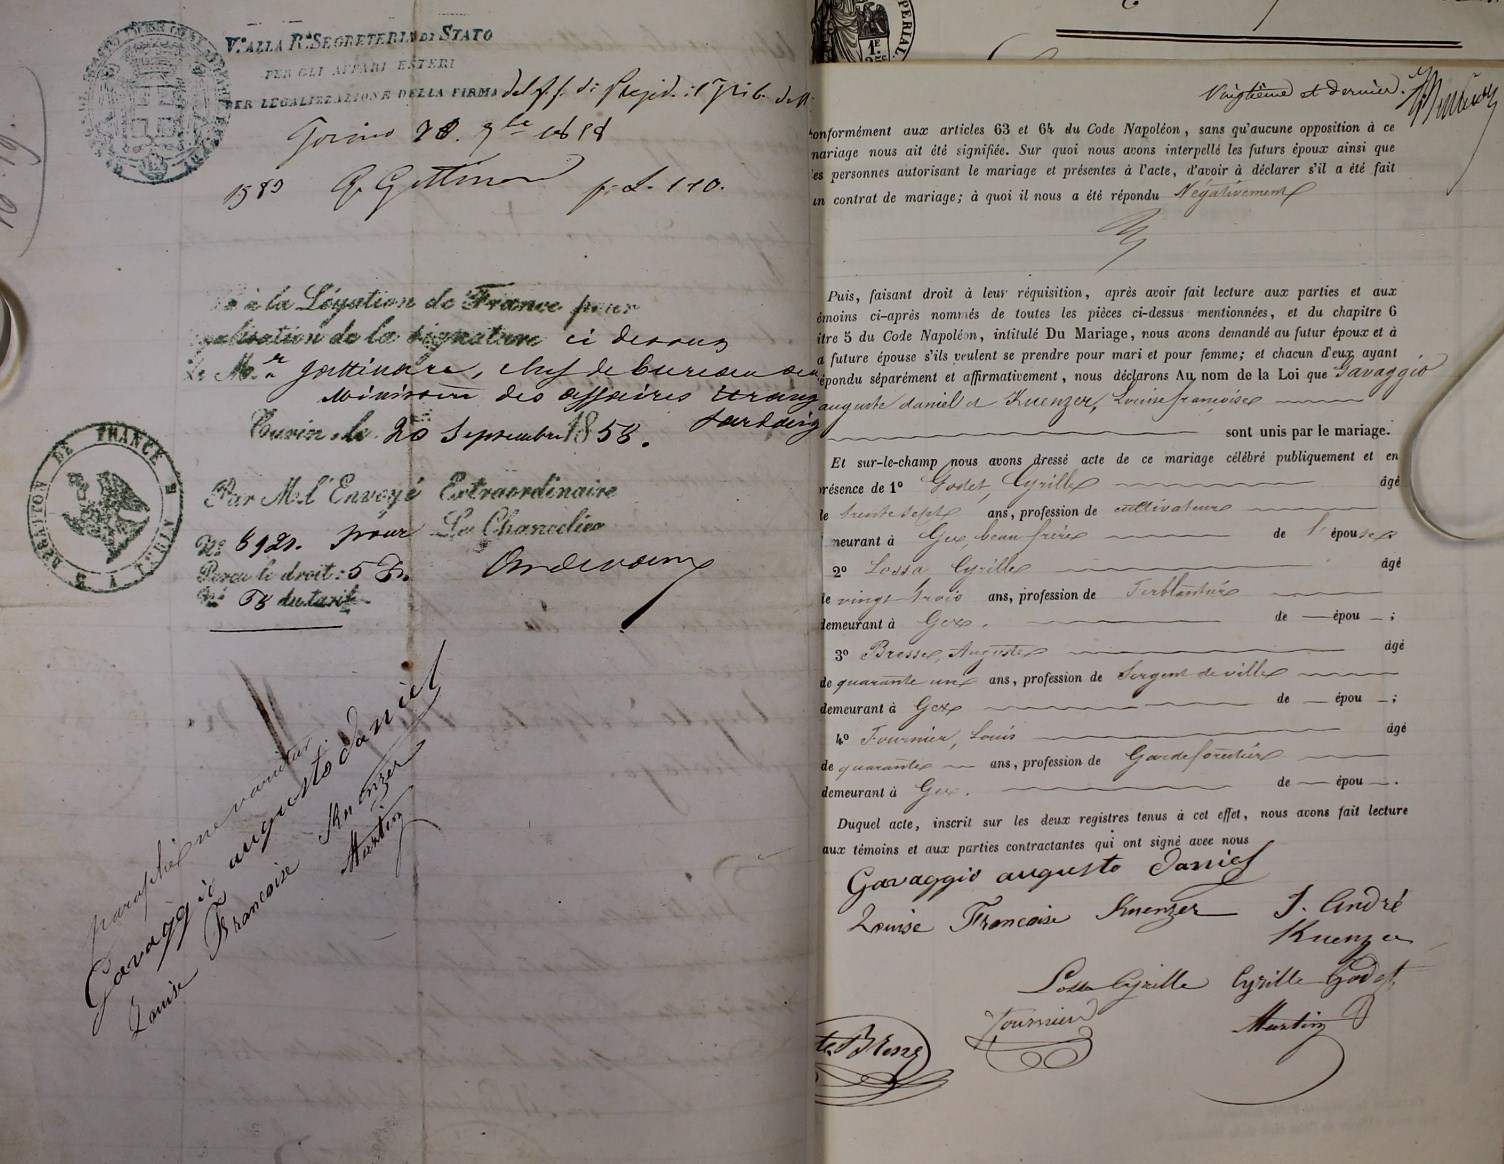 V.º ALLA R.ª SEGRETERIA DI STATO
PER GLI AFFARI ESTERI
PER LEGALIZZAZIONE DELLA FIRMA del ff. di Presid.
Torino 18. 7bre 1858
1583
LÉGATION DE FRANCE
à la Légation de France pour
législation de la signature ci dessus
de Mr. Gattinara, chef de bureau au
Ministère des affaires étrang
Sardaig
Turin, le 20 Septembre 1858.
Par M. l'Envoyé Extraordinaire
Le Chancelier
No pour
Perçu le droit: 5
No 68 du tarif
paraphé ne varietur
Gavaggio augusto daniel
Louise Francoise Kuenzer
Martin
PERIAL
1E
Vingtième et dernier.
conformément aux articles 63 et 64 du Code Napoléon, sans qu'aucune opposition à ce
mariage nous ait été signifiée. Sur quoi nous avons interpellé les futurs époux ainsi que
les personnes autorisant le mariage et présentes à l'acte, d'avoir à déclarer s'il a été fait
un contrat de mariage; à quoi il nous a été répondu Négativement
Puis, faisant droit à leur réquisition, après avoir fait lecture aux parties et aux
émoins ci-après nommés de toutes les pièces ci-dessus mentionnées, et du chapitre 6
itre 5 du Code Napoléon, intitulé Du Mariage, nous avons demandé au futur époux et à
a future épouse s'ils veulent se prendre pour mari et pour femme; et chacun d'eux ayant
répondu séparément et affirmativement, nous déclarons Au nom de la Loi que Gavaggio
auguste daniel et Kuenzer, Louise françoise
sont unis par le mariage.
Et sur-le-champ nous avons dressé acte de ce mariage célébré publiquement et en
présence de 1º Godet, Cyrille âgé
de trente sept ans, profession de cultivateur
meurant à Gex, beau frère de l'épouse
2º Lossa Cyrille âgé
de vingt trois ans, profession de Ferblantier
demeurant à Gex. de — épou —;
3º Bresse, Auguste âgé
de quarante un ans, profession de Sergent de ville
demeurant à Gex de — épou —;
4º Fournier, Louis âgé
de quarante — ans, profession de Garde forestier
demeurant à Gex. de — épou —.
Duquel acte, inscrit sur les deux registres tenus à cet effet, nous avons fait lecture
aux témoins et aux parties contractantes qui ont signé avec nous
Gavaggio augusto Daniel
Louise Francoise Kuenzer J. André
Kuenzer
Lossa Cyrille Cyrille Godet
Fournier Martin
te Bresse